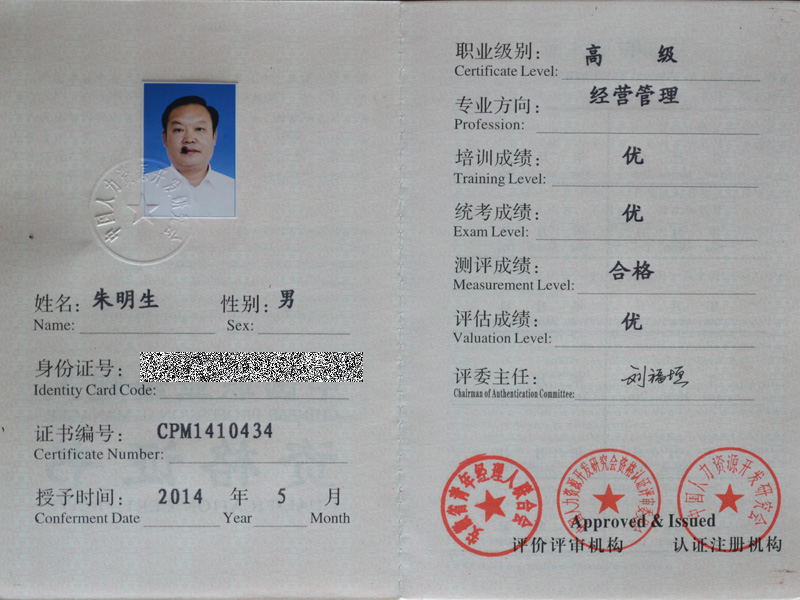 姓名：朱明生 性别：男
Name: Sex:
身份证号：
Identity Card Code:
证书编号：CPM1410434
Certificate Number:
授予时间：2014 年 5 月
Conferment Date Year Month
职业级别：高 级
Certificate Level:
专业方向：经营管理
Profession:
培训成绩：优
Training Level:
统考成绩：优
Exam Level:
测评成绩：合格
Measurement Level:
评估成绩：优
Valuation Level:
评委主任：刘福垣
Chairman of Authentication Committee:
安徽省青年经理人联合会
中国人力资源开发研究会资格认证评审委员会
中国人力资源开发研究会
Approved & Issued
评价评审机构 认证注册机构